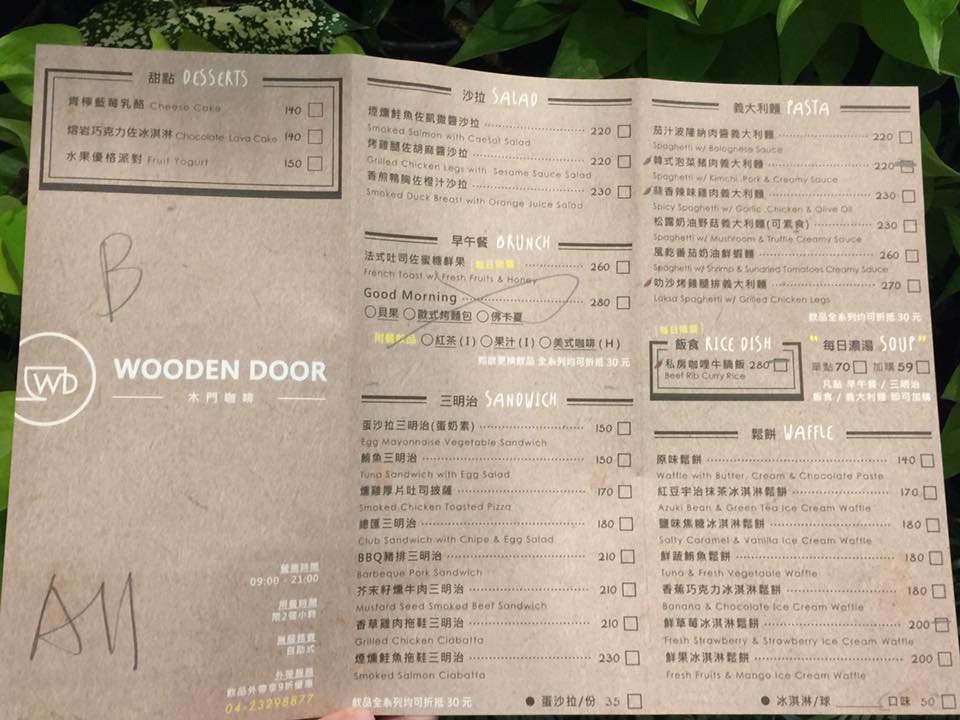 甜點 DESSERTS
青檸藍莓乳酪 Cheese Cake 140
熔岩巧克力佐冰淇淋 Chocolate Lava Cake 140
水果優格派對 Fruit Yogurt 150
B
WD
WOODEN DOOR
木門咖啡
AM
營業時間
09:00 - 21:00
用餐時間
限2個小時
無服務費
自助式
外帶服務
飲品外帶享9折優惠
04-23298877
沙拉 SALAD
煙燻鮭魚佐凱撒醬沙拉 220
Smoked Salmon with Caesar Salad
烤雞腿佐胡麻醬沙拉 220
Grilled Chicken Legs with Sesame Sauce Salad
香煎鴨胸佐橙汁沙拉 230
Smoked Duck Breast with Orange Juice Salad
早午餐 BRUNCH
法式吐司佐蜜糖鮮果 每日限量 260
French Toast w/ Fresh Fruits & Honey
Good Morning 280
貝果 歐式烤麵包 佛卡夏
附餐飲品 紅茶(I) 果汁(I) 美式咖啡(H)
如欲更換飲品 全系列均可折抵 30 元
三明治 SANDWICH
蛋沙拉三明治(蛋奶素) 150
Egg Mayonnaise Vegetable Sandwich
鮪魚三明治 150
Tuna Sandwich with Egg Salad
燻雞厚片吐司披薩 170
Smoked Chicken Toasted Pizza
總匯三明治 180
Club Sandwich with Chips & Egg Salad
BBQ豬排三明治 210
Barbeque Pork Sandwich
芥末籽燻牛肉三明治 210
Mustard Seed Smoked Beef Sandwich
香草雞肉拖鞋三明治 210
Grilled Chicken Ciabatta
煙燻鮭魚拖鞋三明治 230
Smoked Salmon Ciabatta
飲品全系列均可折抵 30 元
● 蛋沙拉/份 35
義大利麵 PASTA
茄汁波隆納肉醬義大利麵 220
Spaghetti w/ Bolognese Sauce
韓式泡菜豬肉義大利麵 220
Spaghetti w/ Kimchi, Pork & Creamy Sauce
蒜香辣味雞肉義大利麵 230
Spicy Spaghetti w/ Garlic ,Chicken & Olive Oil
松露奶油野菇義大利麵(可素食) 230
Spaghetti w/ Mushroom & Truffle Creamy Sauce
風乾番茄奶油鮮蝦麵 260
Spaghetti w/ Shrimp & Sundried Tomatoes Creamy Sauce
叻沙烤雞腿排義大利麵 270
Laksa Spaghetti w/ Grilled Chicken Legs
飲品全系列均可折抵 30 元
每日限量
飯食 RICE DISH
私房咖哩牛腩飯 280
Beef Rib Curry Rice
" 每日濃湯 SOUP "
單點70 加購59
凡點 早午餐 / 三明治
飯食 / 義大利麵 即可加購
鬆餅 WAFFLE
原味鬆餅 140
Waffle with Butter, Cream & Chocolate Paste
紅豆宇治抹茶冰淇淋鬆餅 170
Azuki Bean & Green Tea Ice Cream Waffle
鹽味焦糖冰淇淋鬆餅 180
Salty Caramel & Vanilla Ice Cream Waffle
鮮蔬鮪魚鬆餅 180
Tuna & Fresh Vegetable Waffle
香蕉巧克力冰淇淋鬆餅 180
Banana & Chocolate Ice Cream Waffle
鮮草莓冰淇淋鬆餅 200
Fresh Strawberry & Strawberry Ice Cream Waffle
鮮果冰淇淋鬆餅 200
Fresh Fruits & Mango Ice Cream Waffle
● 冰淇淋/球 口味 50